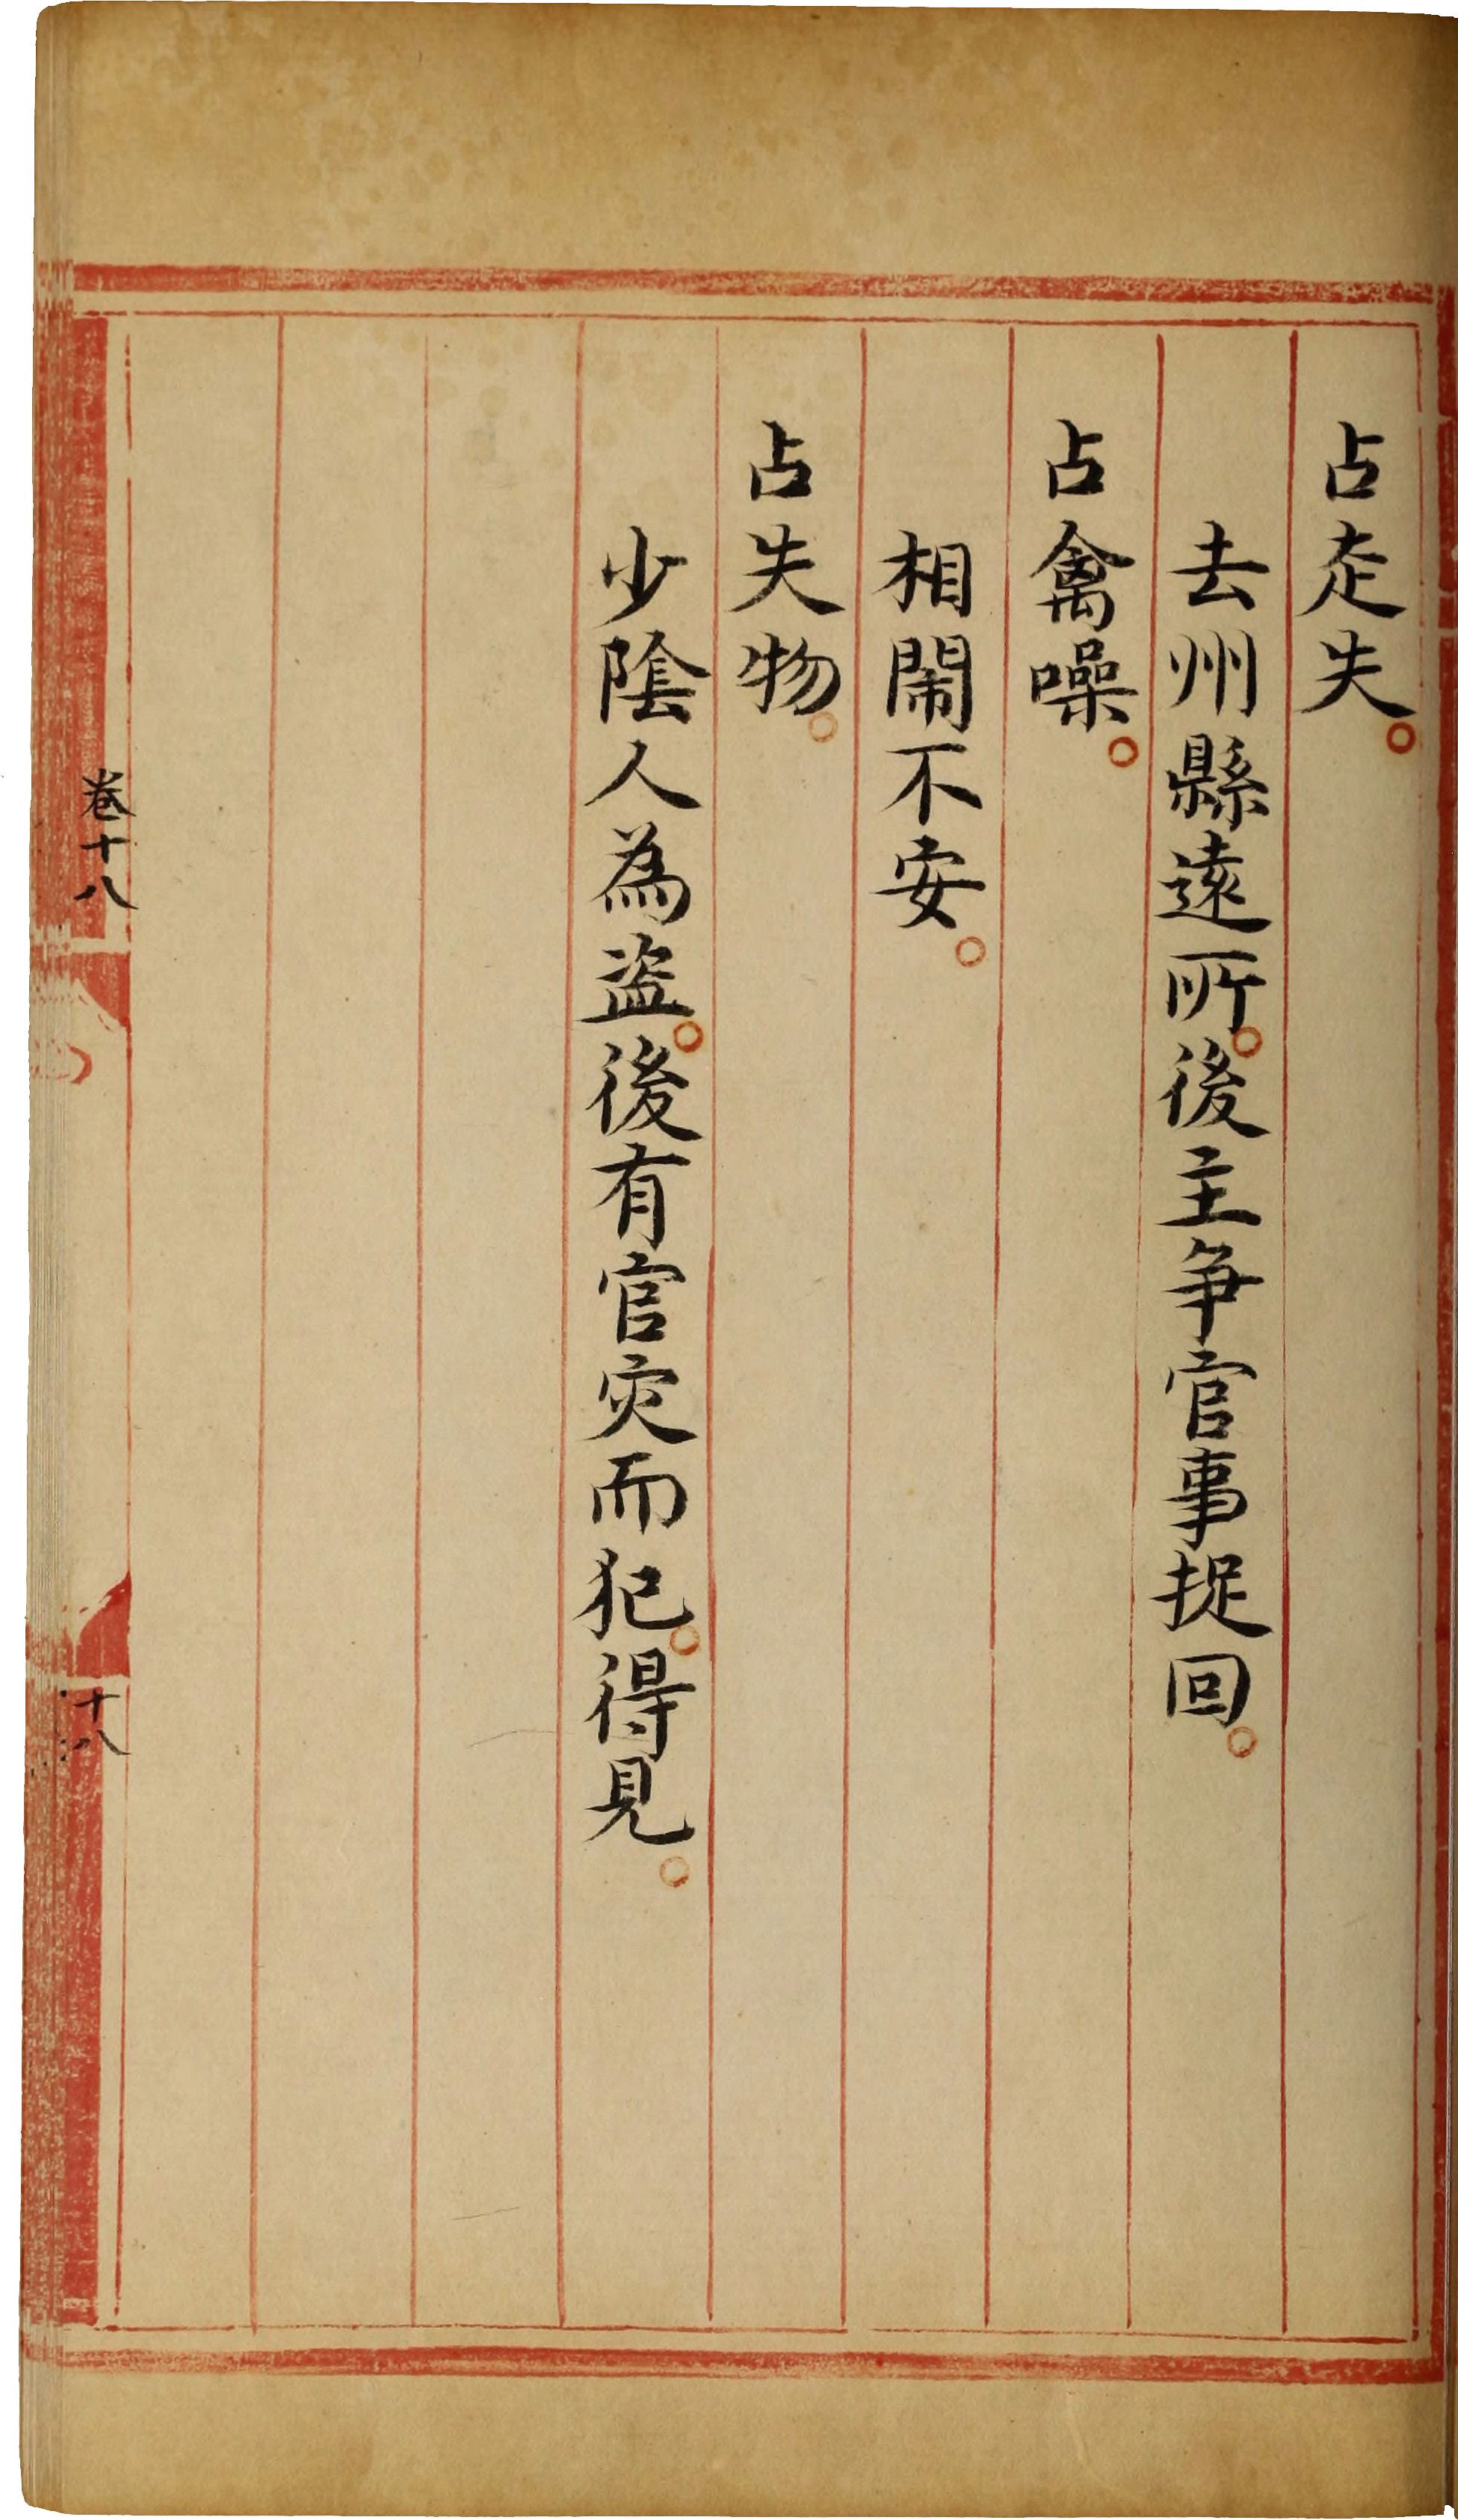 占走失。
去州縣遠所。後主爭官事捉回。
占禽噪。
相鬧不安。
占失物。
少陰人為盜。後有官灾而犯。得見。
卷十八
十八